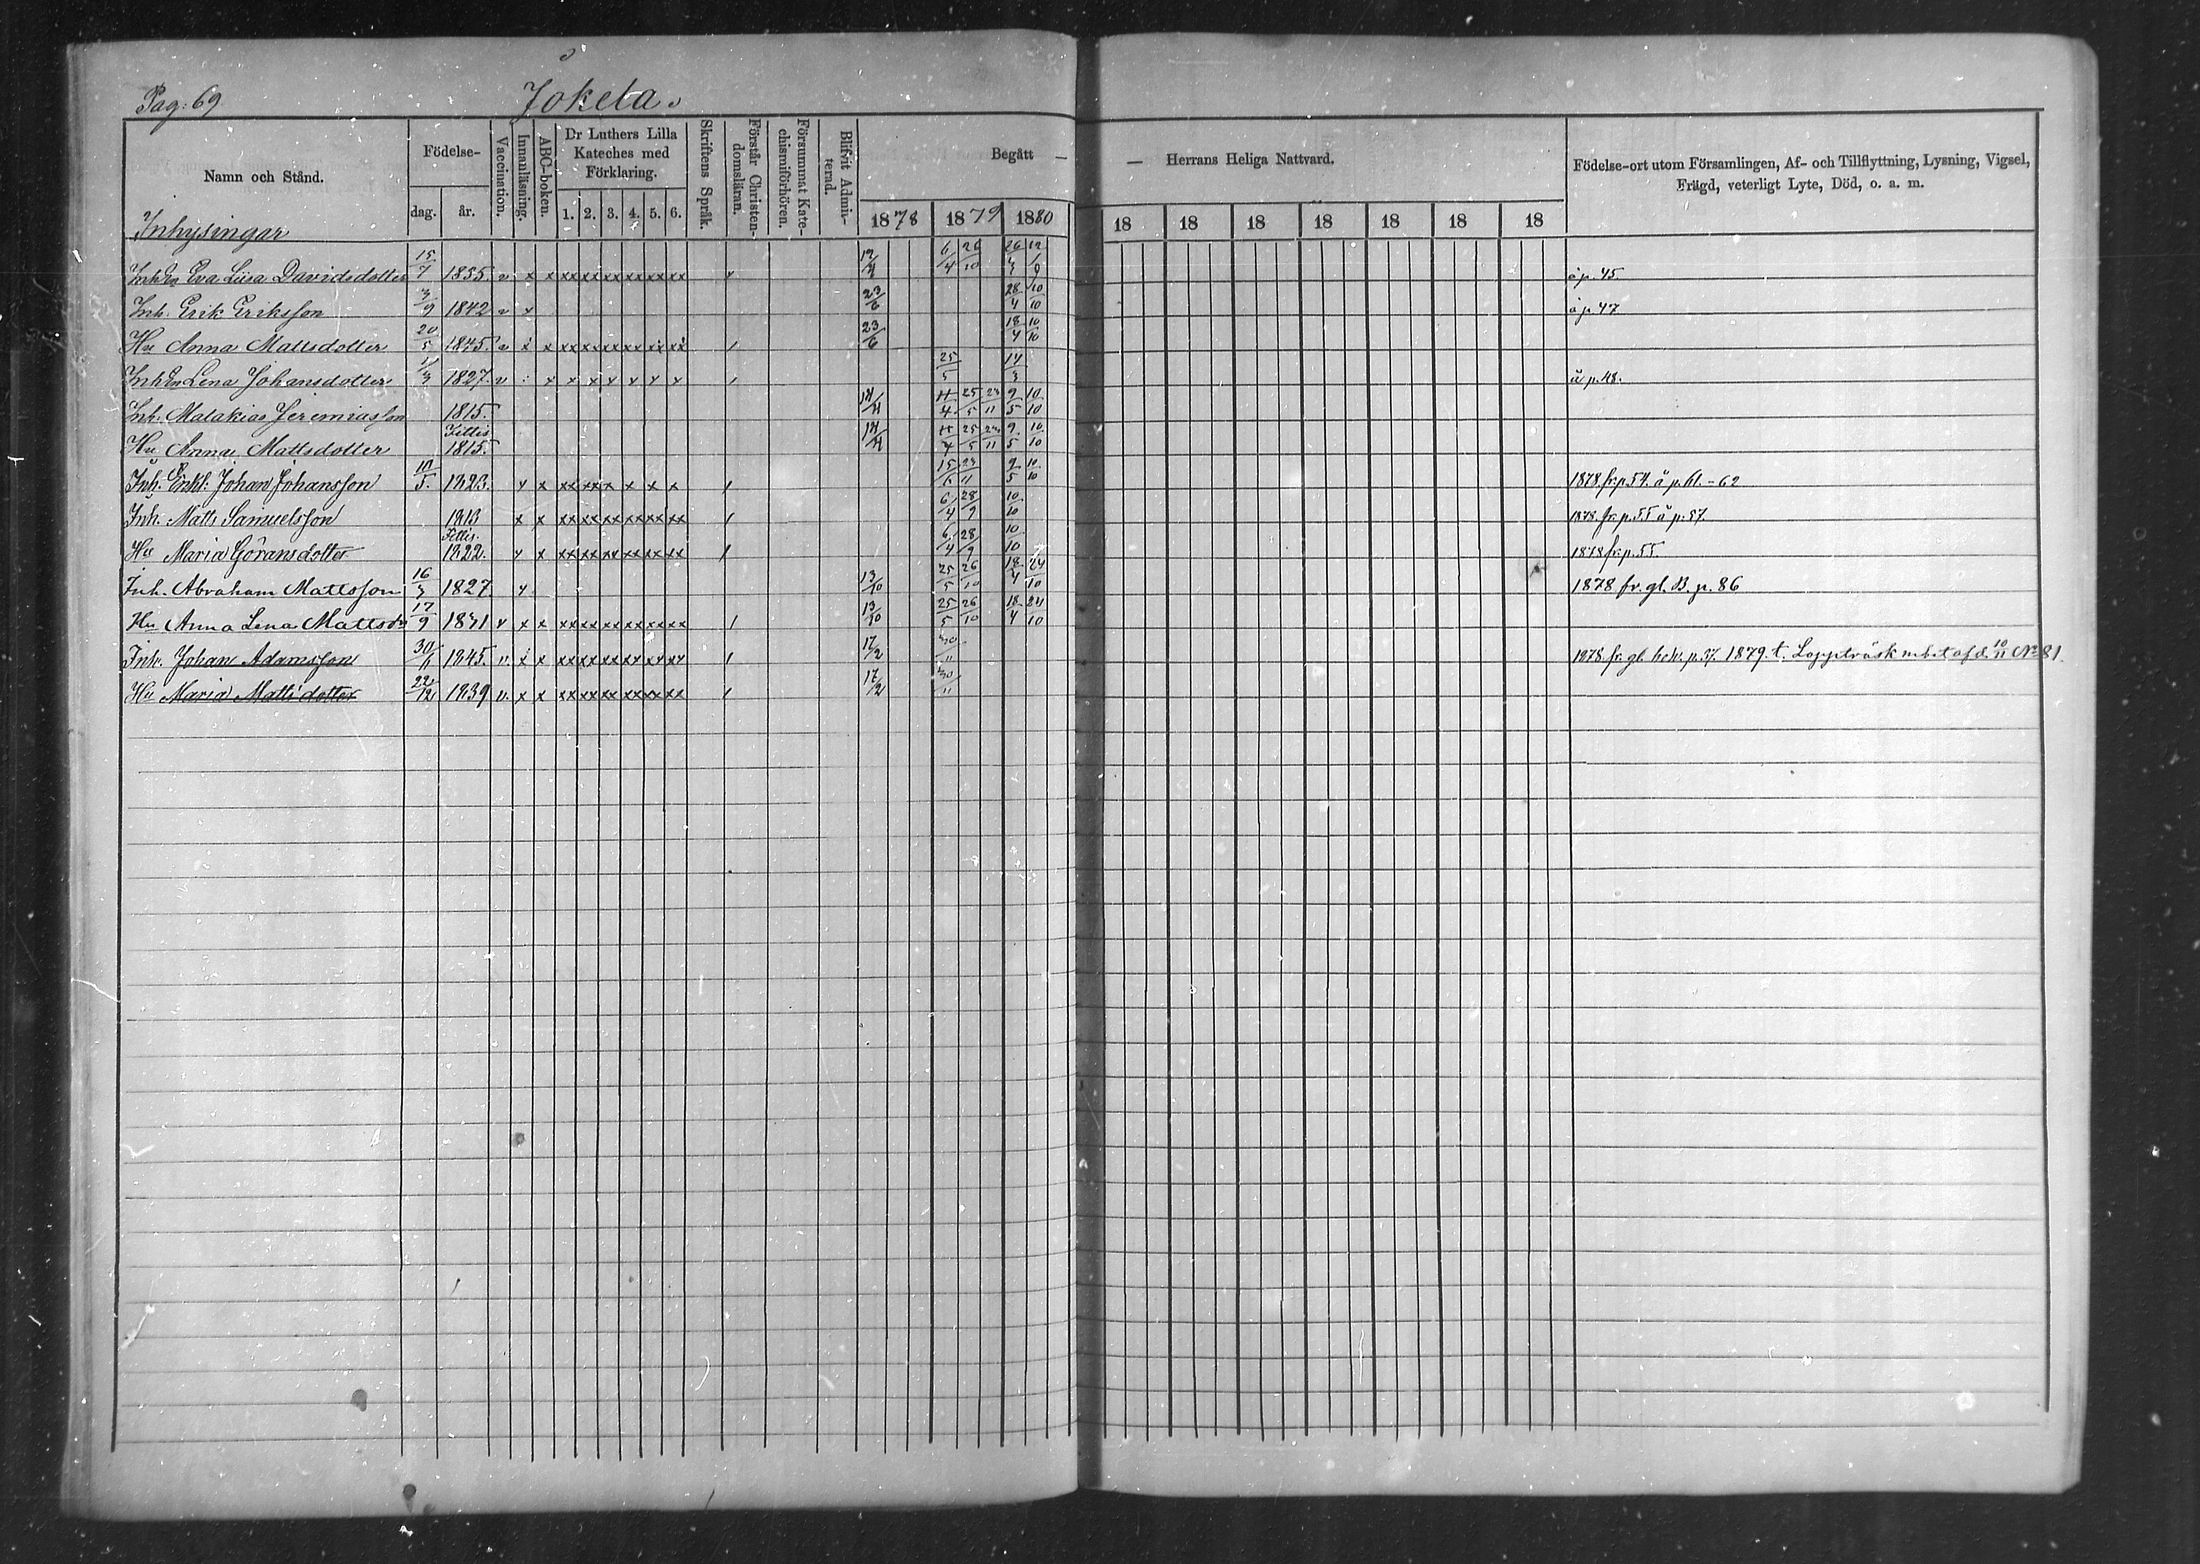 Pag: 69 Jokela.
Namn och Stånd. Födelse- dag. år. Vaccination. Innanläsning. ABC-boken. Dr Luthers Lilla Kateches med Förklaring. 1. 2. 3. 4. 5. 6. Skriftens Språk. Förstår Christendomsläran. Försummat Katechismiförhören. Blifvit Admitterad. Begått — — Herrans Heliga Nattvard. Födelse-ort utom Församlingen, Af- och Tillflyttning, Lysning, Vigsel, Frägd, veterligt Lyte, Död, o. a. m.
1878 1879 1880 18 18 18 18 18 18 18
Inhysingar
Eva Lisa Davidsdotter 15/7 1835 v x x xx xx xx xx xx xx 6/4 26/10 å p. 45
Inh. Erik Eriksson 3/9 1842 v x 23/6 28/4 10/10 å p. 47
Hu Anna Mattsdotter 20/5 1845. v x x xx xx xx xx xx xx 23/6 18/4 10/10
Lena Johansdotter 1/3 1827. v x x x x x x x 25/5 14/3 å p. 48.
Inh. Malakias Jeremiasson 1815. 11/4 25/5 23/11 9/5 10/10
Hu Anna Mattsdotter Fittis 1815. 11/4 25/5 23/11 9/5 10/10
Inh. Enkl. Johan Johansson 1823. x x xx xx x x x x 15/6 23/11 9/5 10/10 1878 fr. p. 54. å p. 61. - 62
Inh. Matts Samuelsson 1813 x x xx xx xx xx xx xx 6/4 28/9 10/10 1878. fr. p. 55 å p. 57.
Hu Maria Göransdotter Fittis. 1822. x x xx xx xx xx xx xx 6/4 28/9 10/10 1878 fr. p. 55
Inh. Abraham Mattsson 16/3 1827 x 13/10 25/5 26/10 18/4 24/10 1878 fr. gl. B. p. 86
Hu Anna Lena Mattsdr 17/9 1831 v x x xx xx xx xx xx xx 13/10 25/5 26/10 18/4 24/10
Inh. Johan Adamsson 30/6 1845. v. x x xx xx xx xx xx xx 17/2 30/11 1878 fr. gl. bok. p. 37. 1879. t. Loppiträsk m. bet. af d. 10/11 No 81.
Hu Maria Mattsdotter 22/12 1839 v. x x xx xx xx xx xx xx 17/2 30/11